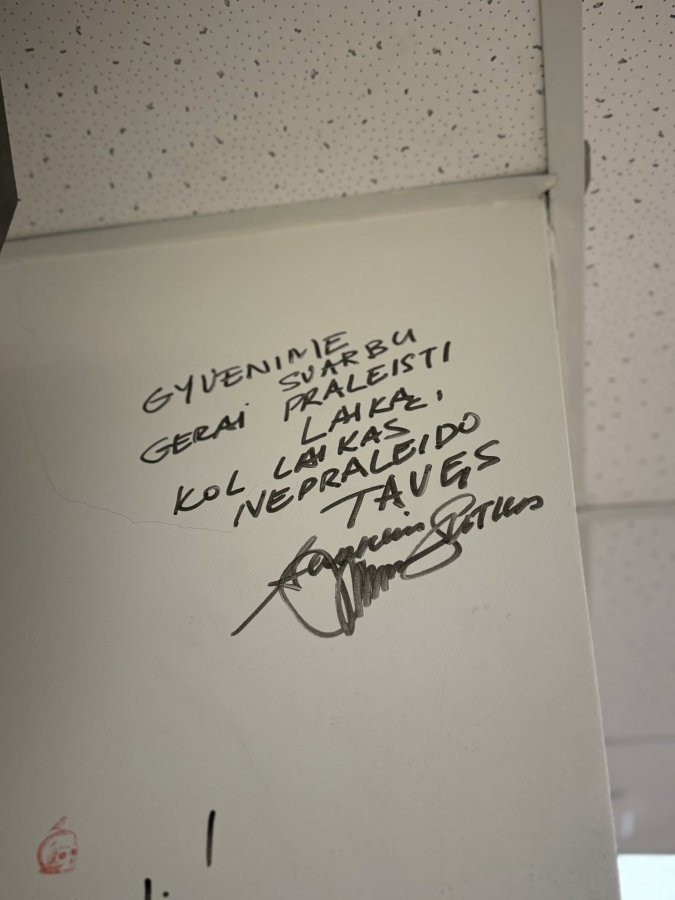 GYVENIME
SVARBU
GERAI PRALEISTI
LAIKĄ,
KOL LAIKAS
NEPRALEIDO
TAVĘS